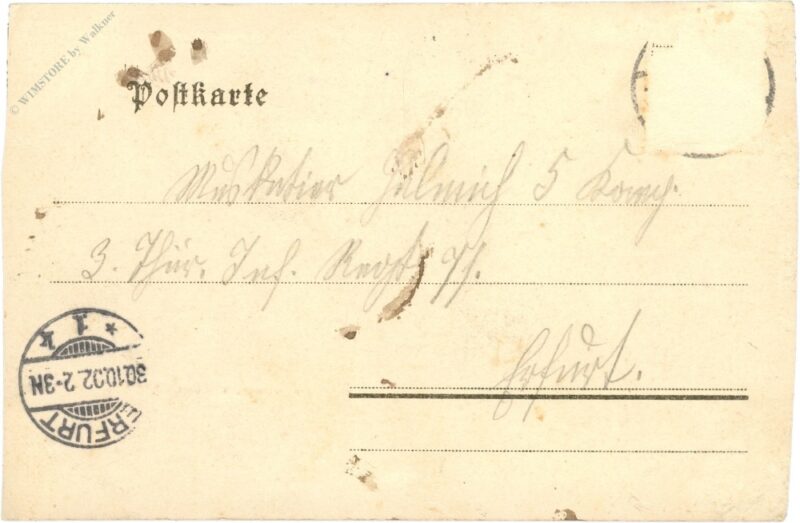 © WIMSTORE by Walkner
Postkarte
Musketier Helmich 5 Komp.
3. Thür. Inf. Regt 71.
Erfurt.
* 1 k
30.10.02. 2-3N
ERFURT